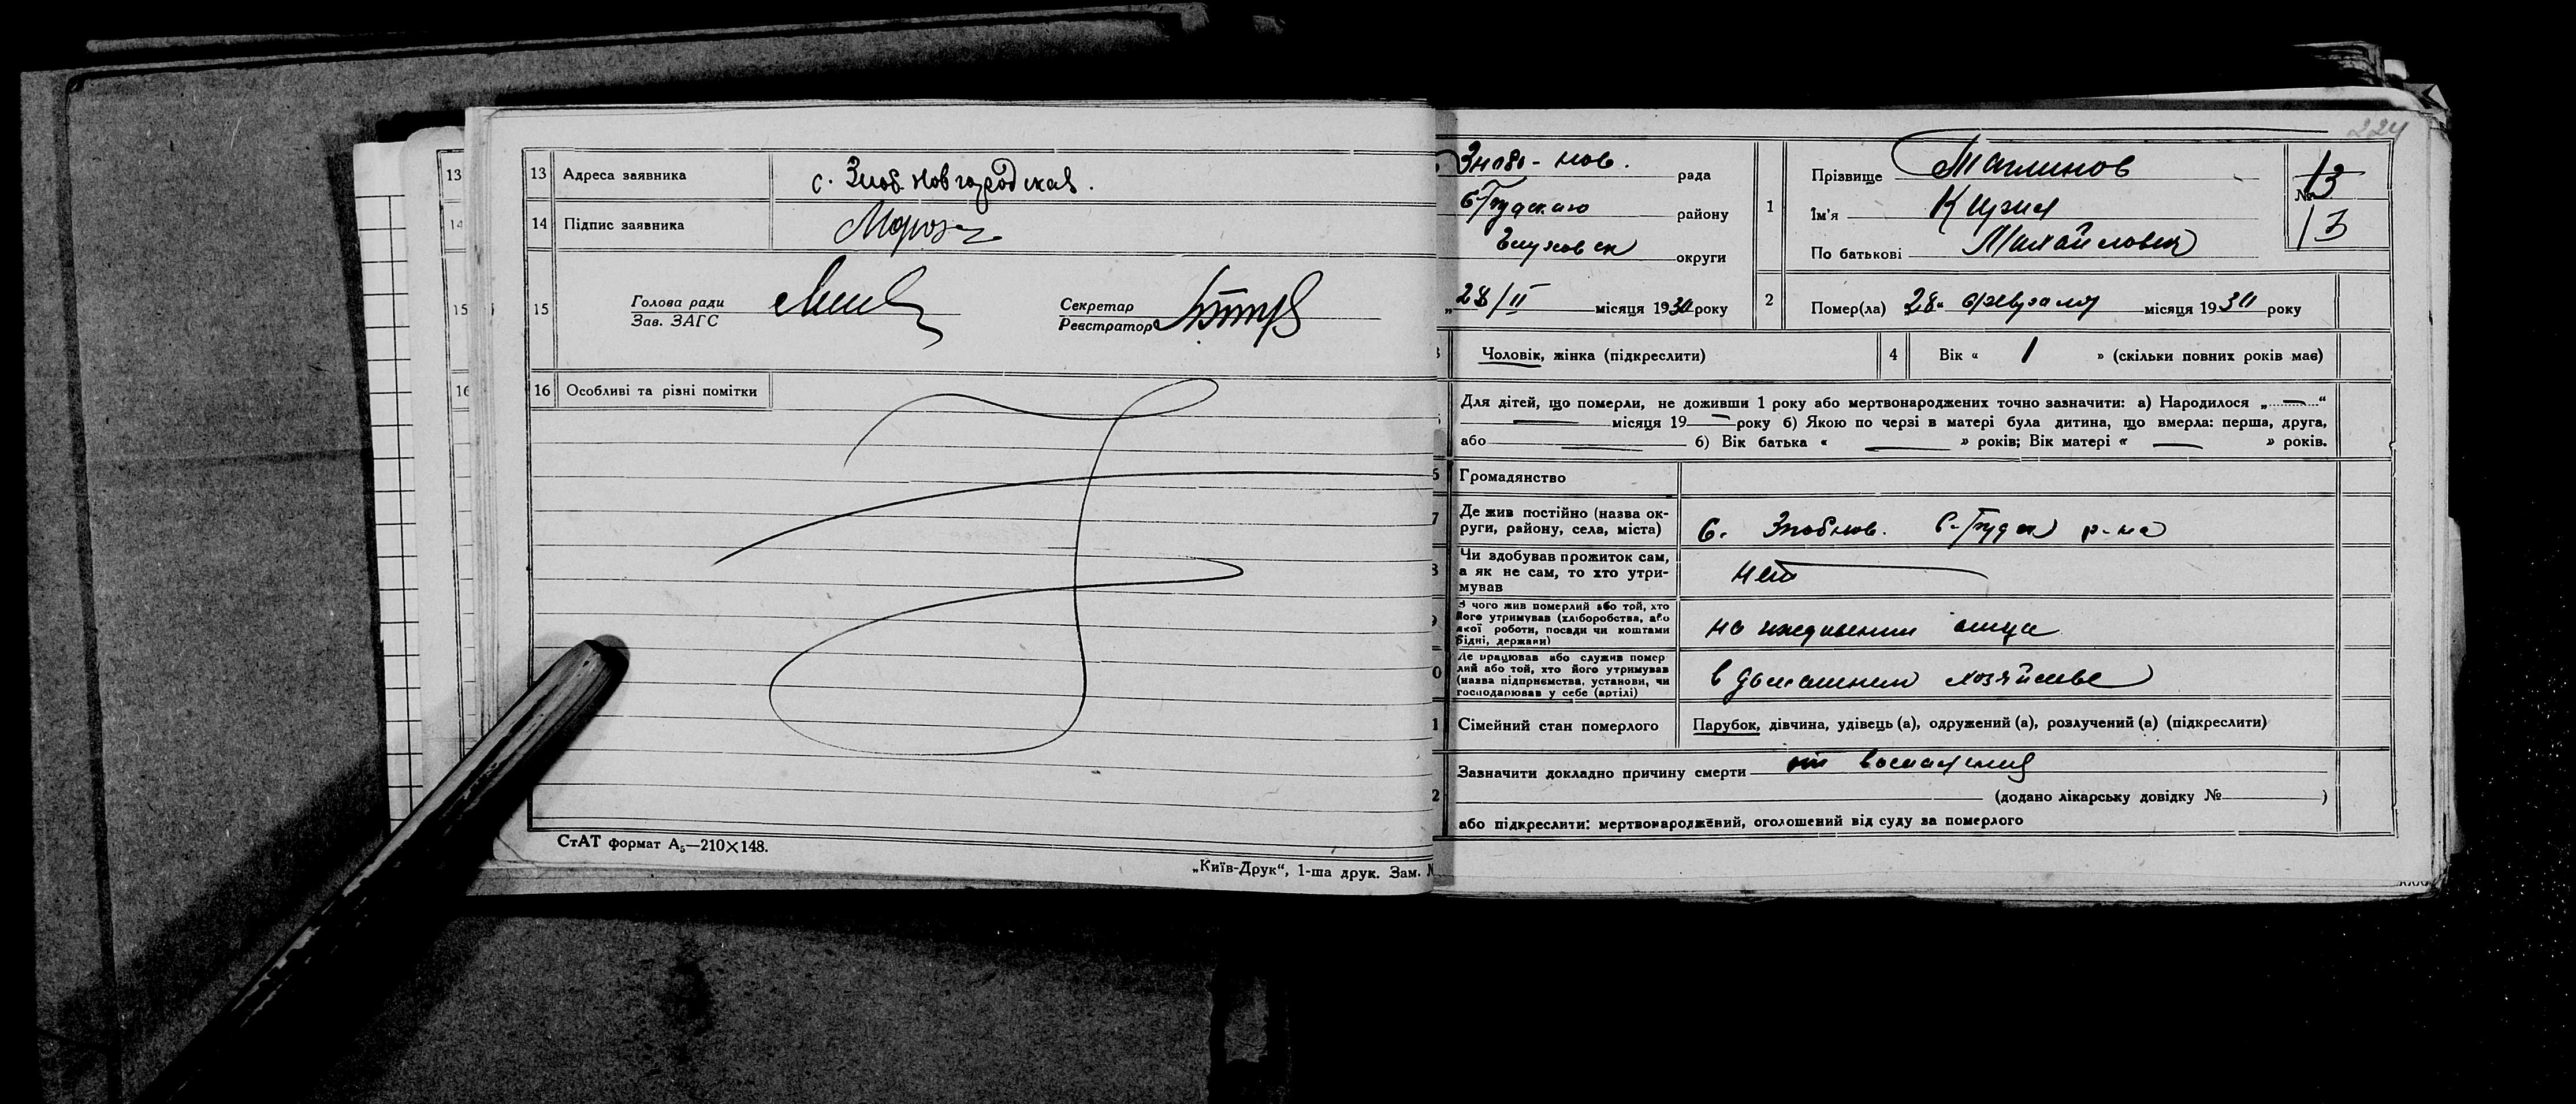 13 Адреса заявника с. Зноб Новгородская.
14 Підпис заявника Мороз
15 Голова ради
Зав. ЗАГС
Секретар
Реєстратор
16 Особливі та різні помітки
СтАТ формат А₅—210×148.
„Київ-Друк“, 1-ша друк. Зам.
13
14
15
16
224
Знобь-Нов. рада
району
Глуховск округи
„28/II місяця 1930 року
1 Прізвище Малинов
Ім'я Кузма
По батькові Михайлович
№ 13
13
2 Помер(ла) 28 февраля місяця 1930 року
Чоловік, жінка (підкреслити)
4 Вік « 1 » (скільки повних років має)
Для дітей, що померли, не доживши 1 року або мертвонароджених точно зазначити: а) Народилося „ — “
— місяця 19 — року б) Якою по черзі в матері була дитина, що вмерла: перша, друга,
або — б) Вік батька « — » років; Вік матері « — » років.
Громадянство
Де жив постійно (назва ок-
руги, району, села, міста)
с. Знобнов. С-Буда р-на
Чи здобував прожиток сам,
а як не сам, то хто утри-
мував
нет
З чого жив померлий або той, хто
його утримував (хліборобства, або
якої роботи, посади чи коштами
рідні, держави)
на иждивении отца
Де працював або служив помер
лий або той, хто його утримував
(назва підприємства, установи, чи
господарював у себе (артілі)
в домашнем хозяйстве
Сімейний стан померлого
Парубок, дівчина, удівець (а), одружений (а), розлучений (а) (підкреслити)
Зазначити докладно причину смерти от воспаления
(додано лікарську довідку № )
або підкреслити: мертвонароджений, оголошений від суду за померлого